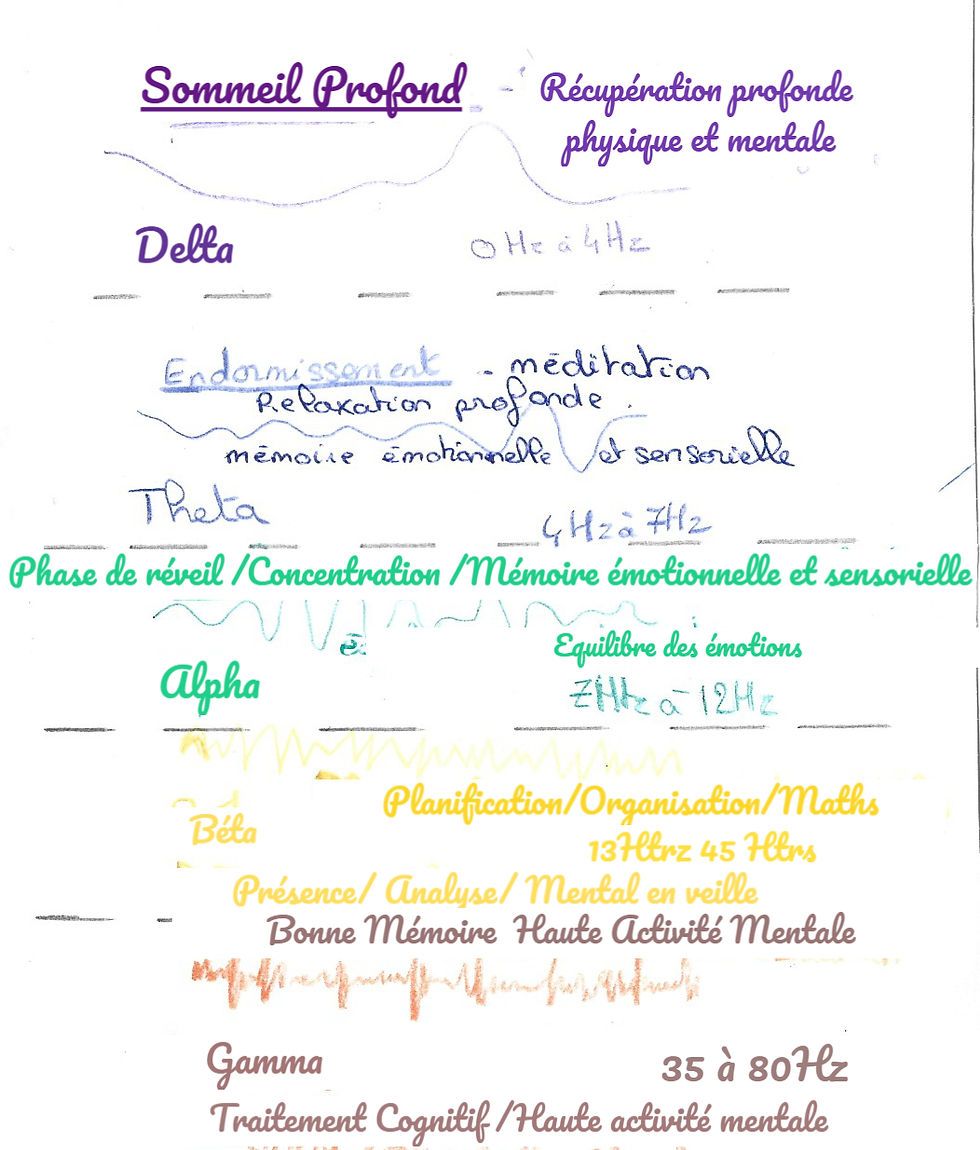 Sommeil Profond
Récupération profonde
physique et mentale
Delta
0 Hz à 4Hz
Endormissement - méditation
Relaxation profonde.
mémoire émotionnelle et sensorielle
Theta
4Hz à 7Hz
Phase de réveil /Concentration /Mémoire émotionnelle et sensorielle
Equilibre des émotions
Alpha
7Htz à 12Hz
Planification/Organisation/Maths
Béta
13Htrz 45 Htrs
Présence/ Analyse/ Mental en veille
Bonne Mémoire Haute Activité Mentale
Gamma
35 à 80Hz
Traitement Cognitif /Haute activité mentale